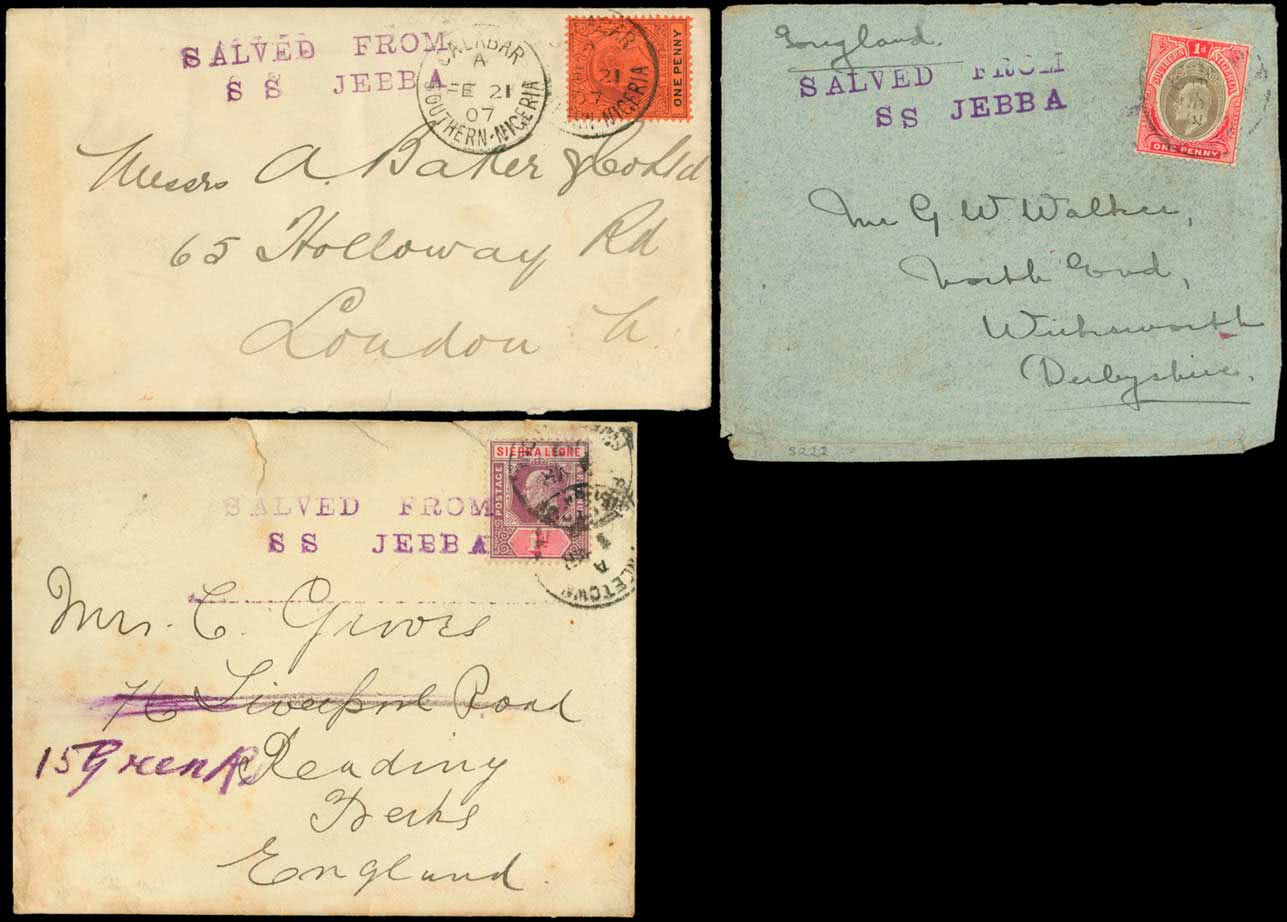 SALVED FROM
SS JEBBA
CALABAR
A
FE 21
07
SOUTHERN-NIGERIA
21
07
ONE PENNY
Messrs A. Baker & Co Ltd
65 Holloway Rd
London N.
England.
SALVED FROM
SS JEBBA
SOUTHERN NIGERIA
1d
ONE PENNY
Mr G W. Walker,
North End,
Wirksworth
Derbyshire.
5222
SIERRA LEONE
POSTAGE
1d
SALVED FROM
SS JEBBA
A
Mrs. C. Groves
76 Liverpool Road
15 Green Rd
Reading
Berks
England.